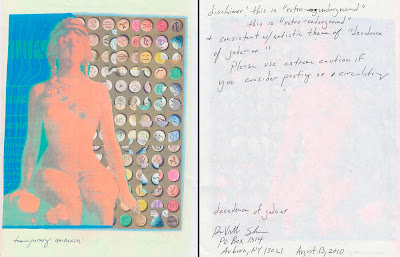 temporary amnesia
disclaimer: this is "retro-underground"
this is "retro-underground"
& consistent w/artistic theme of "decadence
of jadcar"
Please use extreme caution if
you consider posting or circulating
decadence of jadcar
PO Box 1314
Auburn, NY 13021 August 13, 2010